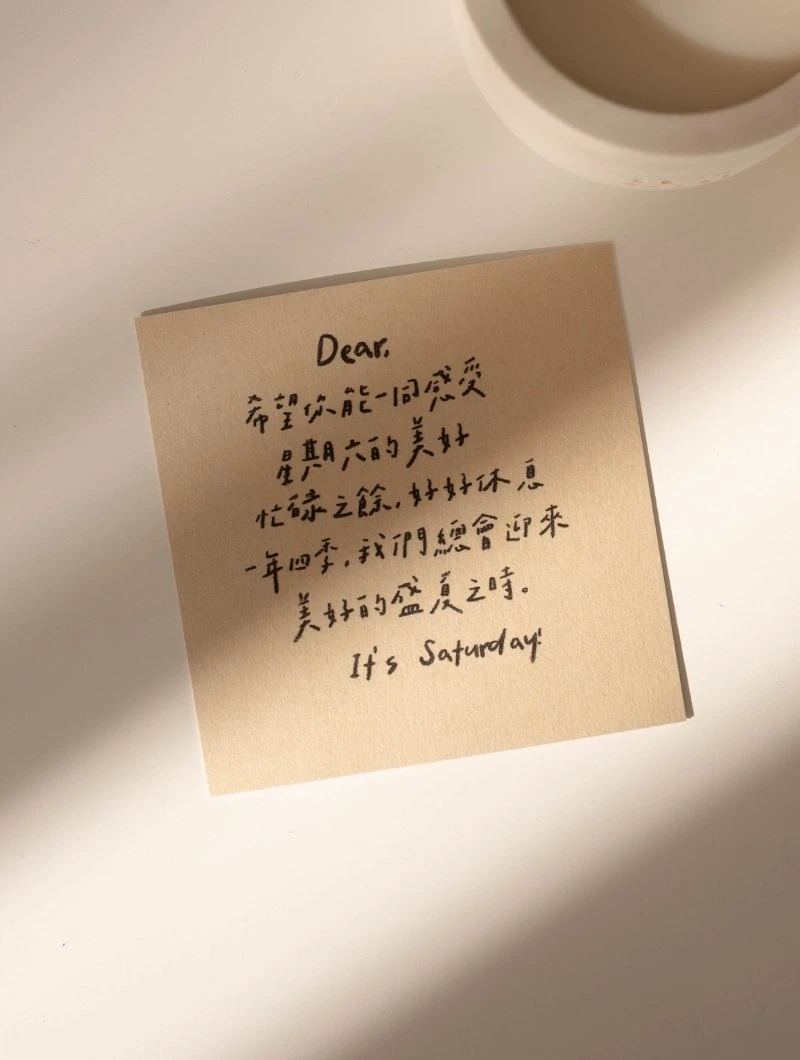 Dear,
希望你能一同感受
星期六的美好
忙碌之餘,好好休息
一年四季,我們總會迎來
美好的盛夏之時。
It's Saturday!